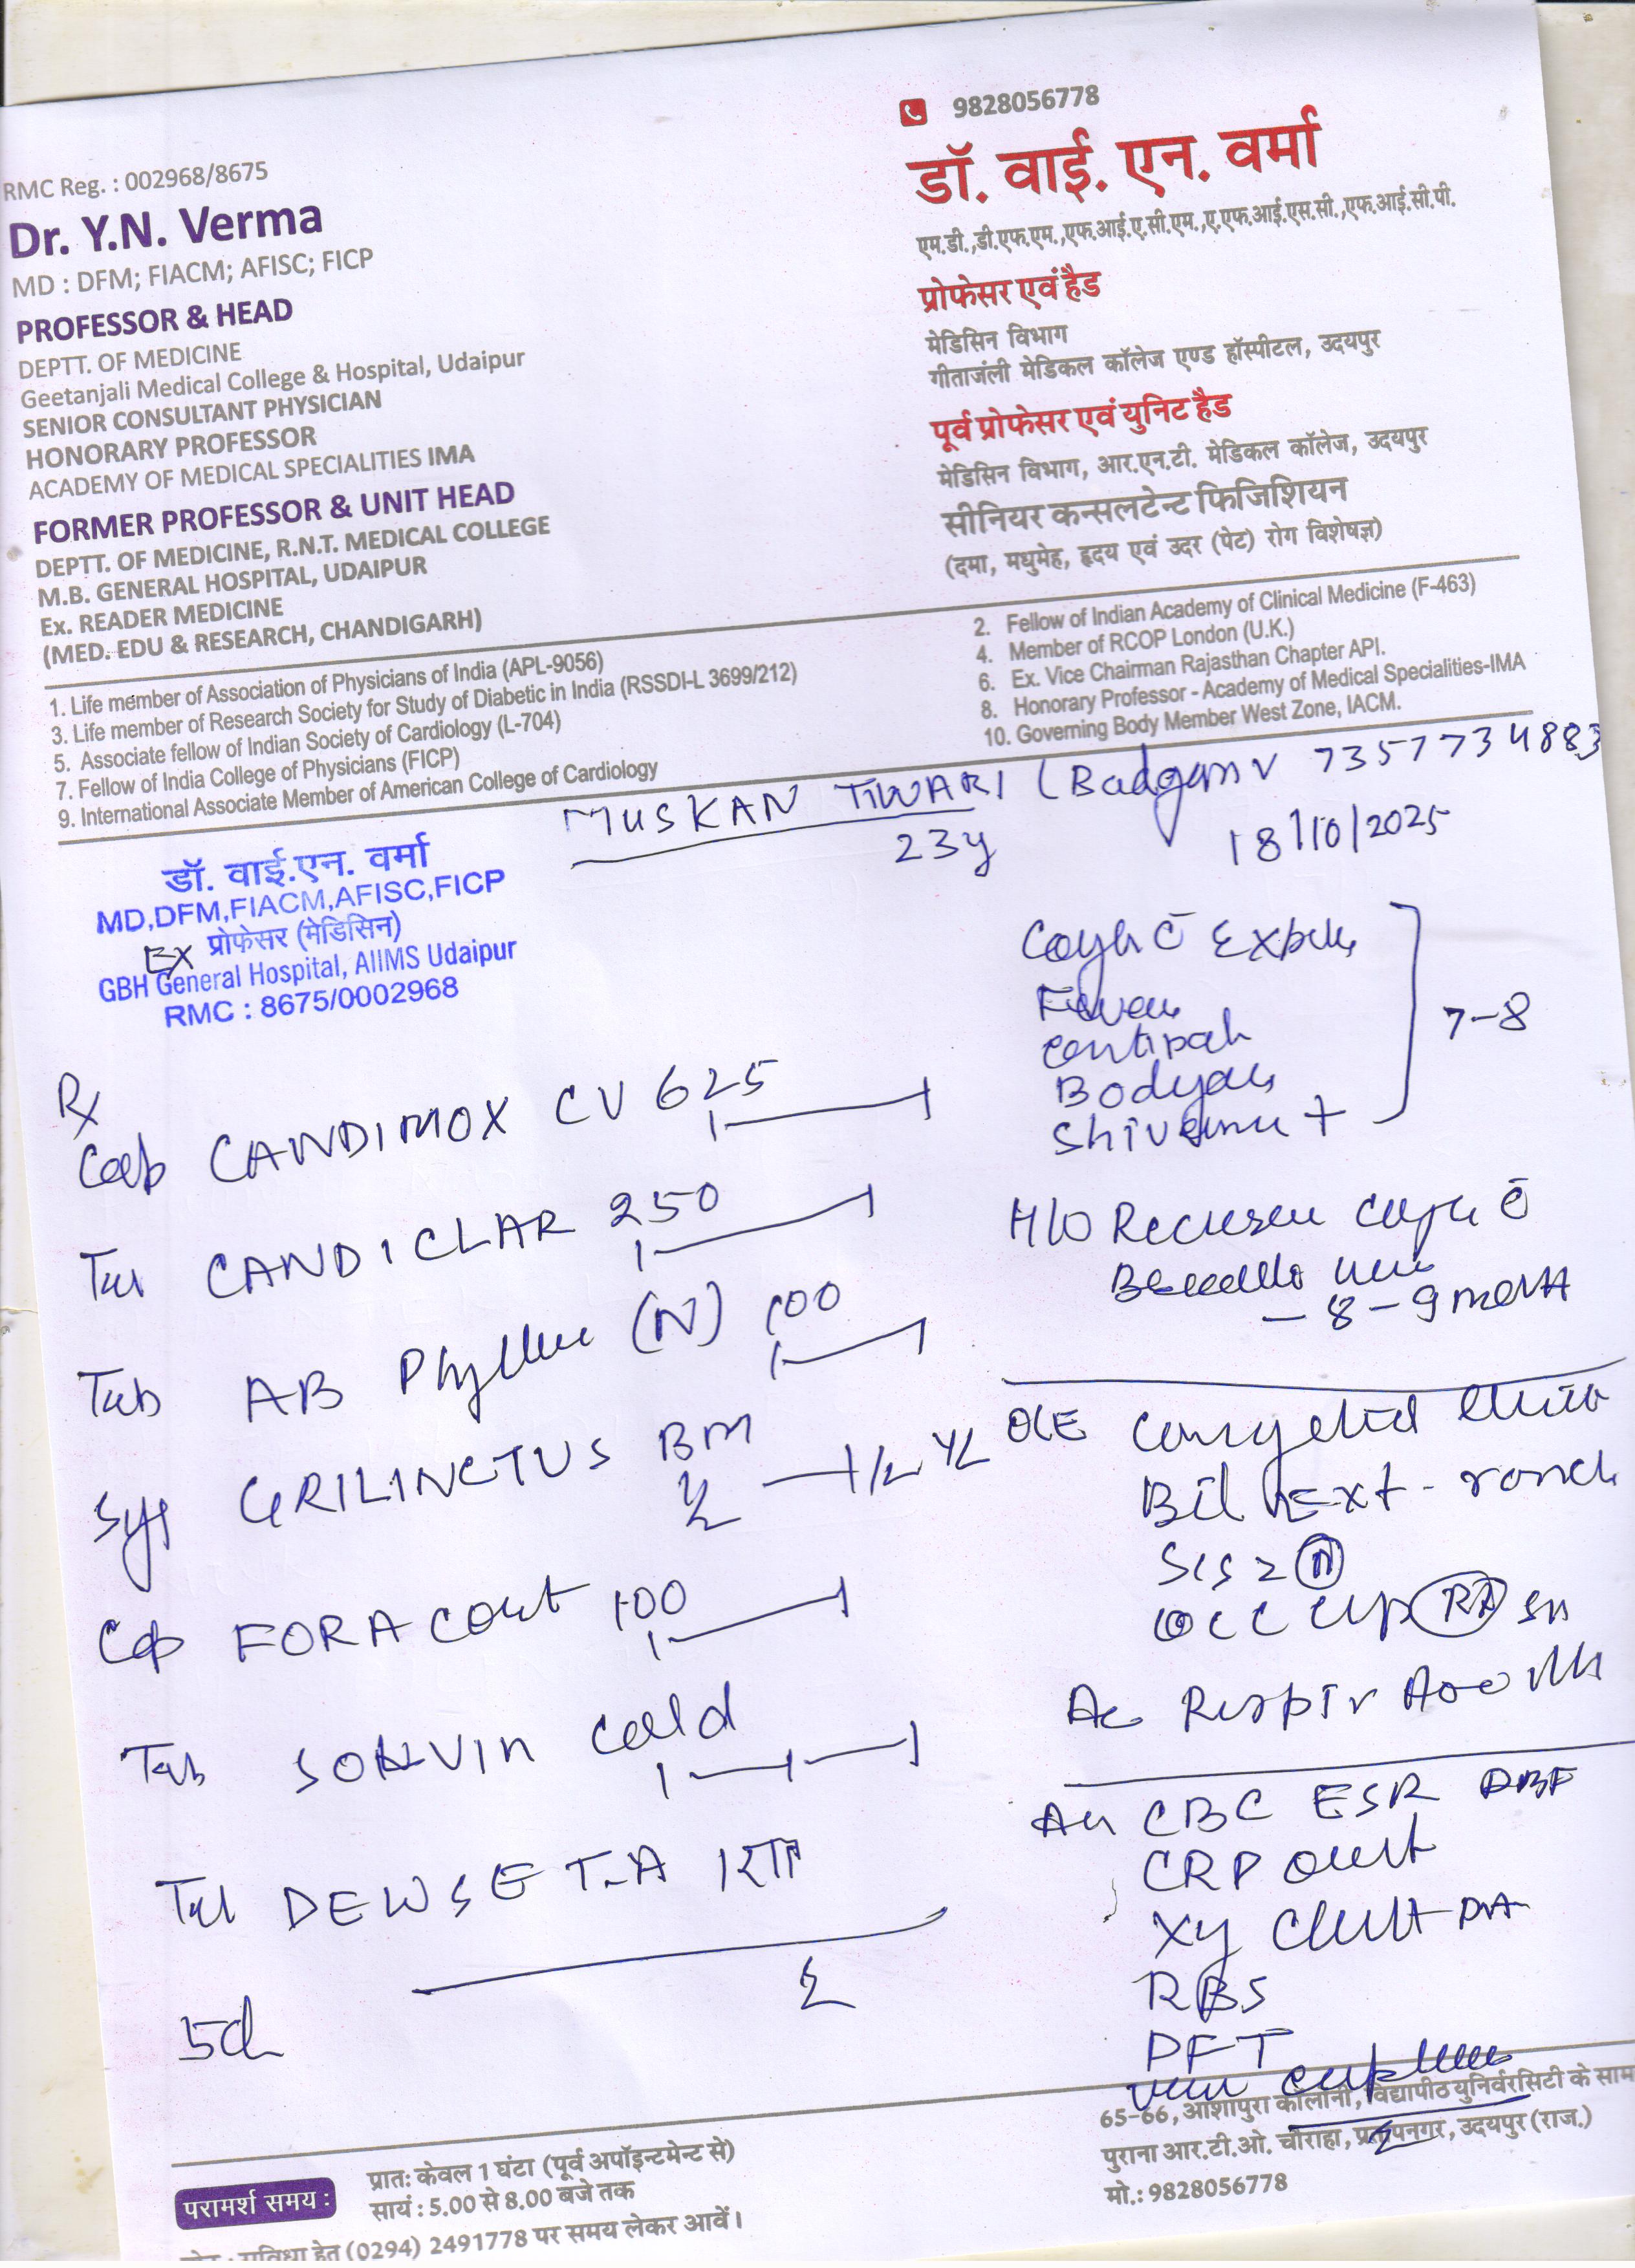 9828056778
RMC Reg. : 002968/8675
Dr. Y.N. Verma
MD : DFM; FIACM; AFISC; FICP
PROFESSOR & HEAD
DEPTT. OF MEDICINE
Geetanjali Medical College & Hospital, Udaipur
SENIOR CONSULTANT PHYSICIAN
HONORARY PROFESSOR
ACADEMY OF MEDICAL SPECIALITIES IMA
FORMER PROFESSOR & UNIT HEAD
DEPTT. OF MEDICINE, R.N.T. MEDICAL COLLEGE
M.B. GENERAL HOSPITAL, UDAIPUR
Ex. READER MEDICINE
(MED. EDU & RESEARCH, CHANDIGARH)
डॉ. वाई. एन. वर्मा
एम.डी.,डी.एफ.एम.,एफ.आई.ए.सी.एम.,ए.एफ.आई.एस.सी.,एफ.आई.सी.पी.
प्रोफेसर एवं हैड
मेडिसिन विभाग
गीताजंली मेडिकल कॉलेज एण्ड हॉस्पीटल, उदयपुर
पूर्व प्रोफेसर एवं युनिट हैड
मेडिसिन विभाग, आर.एन.टी. मेडिकल कॉलेज, उदयपुर
सीनियर कन्सलटेन्ट फिजिशियन
(दमा, मधुमेह, हृदय एवं उदर (पेट) रोग विशेषज्ञ)
1. Life member of Association of Physicians of India (APL-9056)
2. Fellow of Indian Academy of Clinical Medicine (F-463)
3. Life member of Research Society for Study of Diabetic in India (RSSDI-L 3699/212)
4. Member of RCOP London (U.K.)
5. Associate fellow of Indian Society of Cardiology (L-704)
6. Ex. Vice Chairman Rajasthan Chapter API.
7. Fellow of India College of Physicians (FICP)
8. Honorary Professor - Academy of Medical Specialities-IMA
9. International Associate Member of American College of Cardiology
10. Governing Body Member West Zone, IACM.
MUSKAN TIWARI ( 7357734883
23y 18/10/2025
डॉ. वाई.एन. वर्मा
MD,DFM,FIACM,AFISC,FICP
EX प्रोफेसर (मेडिसिन)
GBH General Hospital, AIIMS Udaipur
RMC : 8675/0002968
Cough c̄
Fever
7-8
+
Rx
Cap CANDIMOX CV 625
Tab CANDICLAR 250
Tab AB Phylline (N) 100
Syp GRILINCTUS BM
1/2 1/2 1/2
Cap FORACORT 100
Tab SONVIN Cold
Tab DEWSET-A
5d
H/O c̄
- 8 - 9 month
O/E
Bil Ext - ronchi
S1S2 (N)
CBC ESR
CRP
RBS
PFT
परामर्श समय :
प्रातः केवल 1 घंटा (पूर्व अपॉइन्टमेन्ट से)
सायं : 5.00 से 8.00 बजे तक
सुविधा हेतु (0294) 2491778 पर समय लेकर आवें।
65-66, आशापुरा कॉलोनी, विद्यापीठ युनिर्वरसिटी के साम
पुराना आर.टी.ओ. चौराहा, प्रतापनगर, उदयपुर (राज.)
मो.: 9828056778